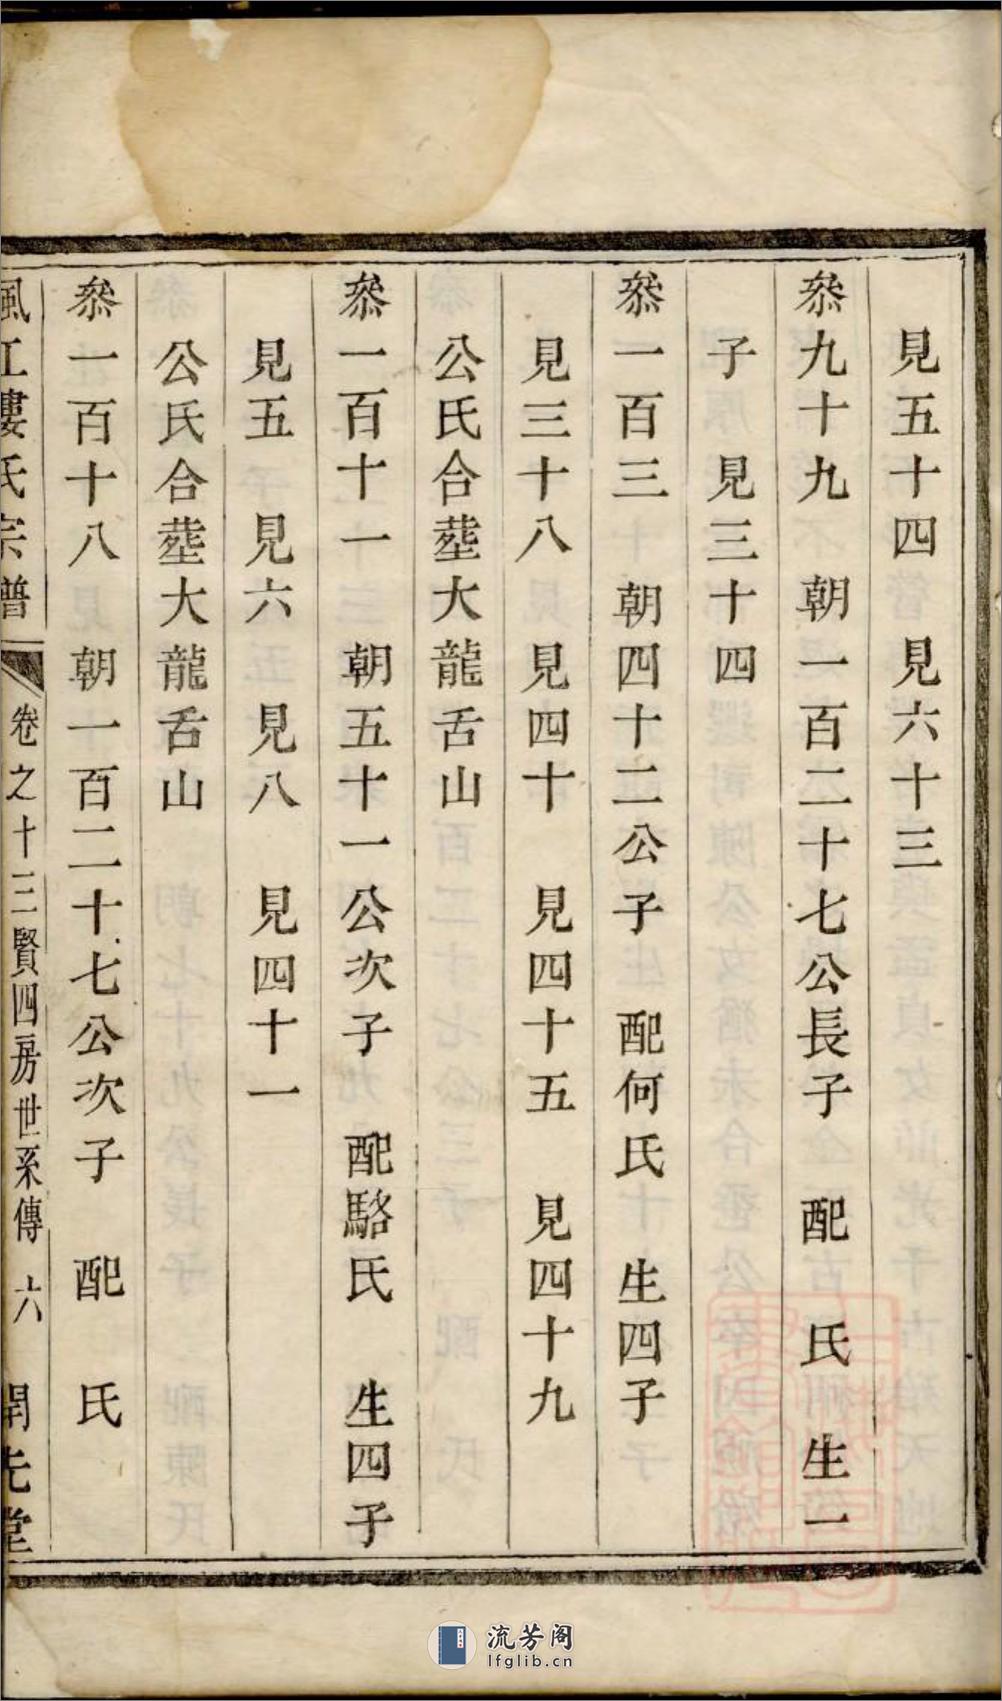 見五十四　見六十三
叅九十九　朝一百二十七公長子　配　氏　生一
子　見三十四
叅一百三　朝四十二公子　配何氏　生四子
見三十八　見四十　見四十五　見四十九
公氏合塟大龍舌山
叅一百十一　朝五十一公次子　配駱氏　生四子
見五　見六　見八　見四十一
公氏合塟大龍舌山
叅一百十八　朝一百二十七公次子　配　氏
楓江樓氏宗譜　卷之十三賢四房世系傳　六　開先堂
流芳阁
lfglib.cn